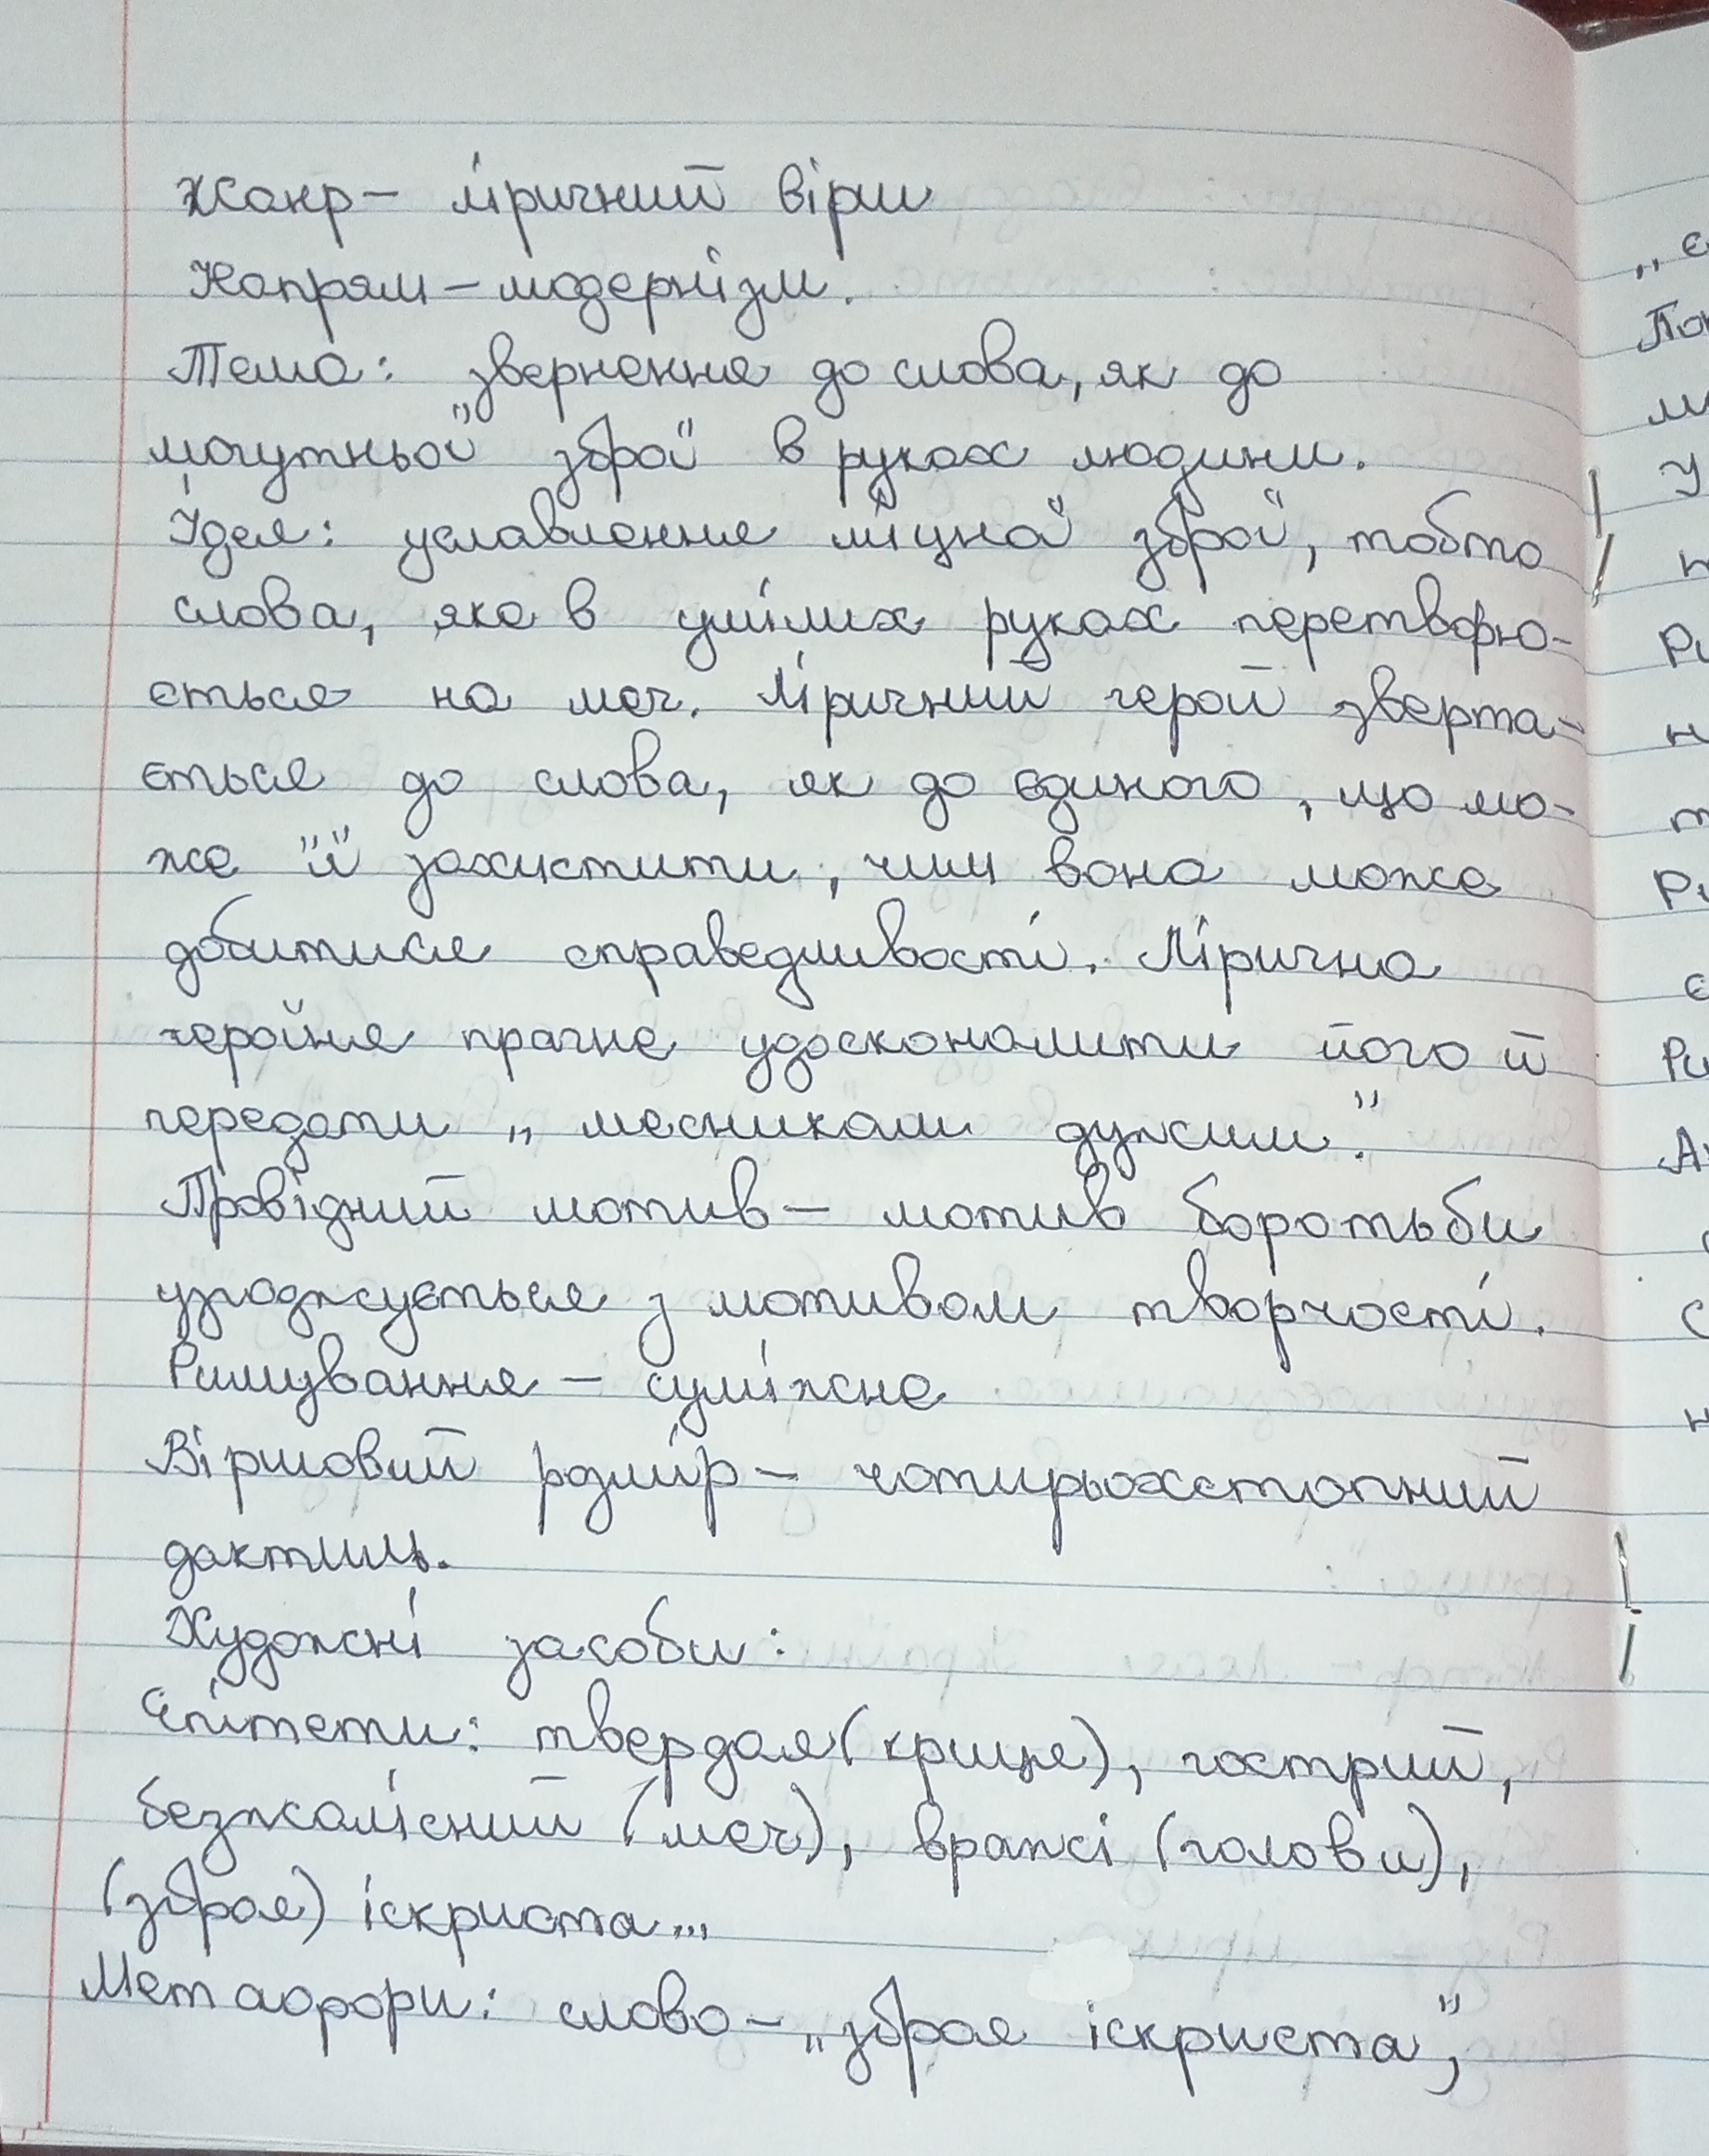 Жанр – ліричний вірш
Напрям – модернізм.
Тема: звернення до слова, як до
могутньої зброї в руках людини.
Ідея: уславлення міцної зброї, тобто
слова, яке в умілих руках перетворю-
ється на меч. Ліричний герой зверта-
ється до слова, як до єдиного, що мо-
же її захистити, чим вона може
добитися справедливості. Лірична
героїня прагне удосконалити його й
передати „месникам дужим".
Провідний мотив – мотив боротьби
узгоджується з мотивом творчості.
Римування – суміжне
Віршовий розмір – чотирьохстопний
дактиль.
Художні засоби:
Епітети: твердая (криця), гострий,
безжалісний (меч), вражі (голови),
(зброя) іскриста...
Метафори: слово – „зброя іскриста",